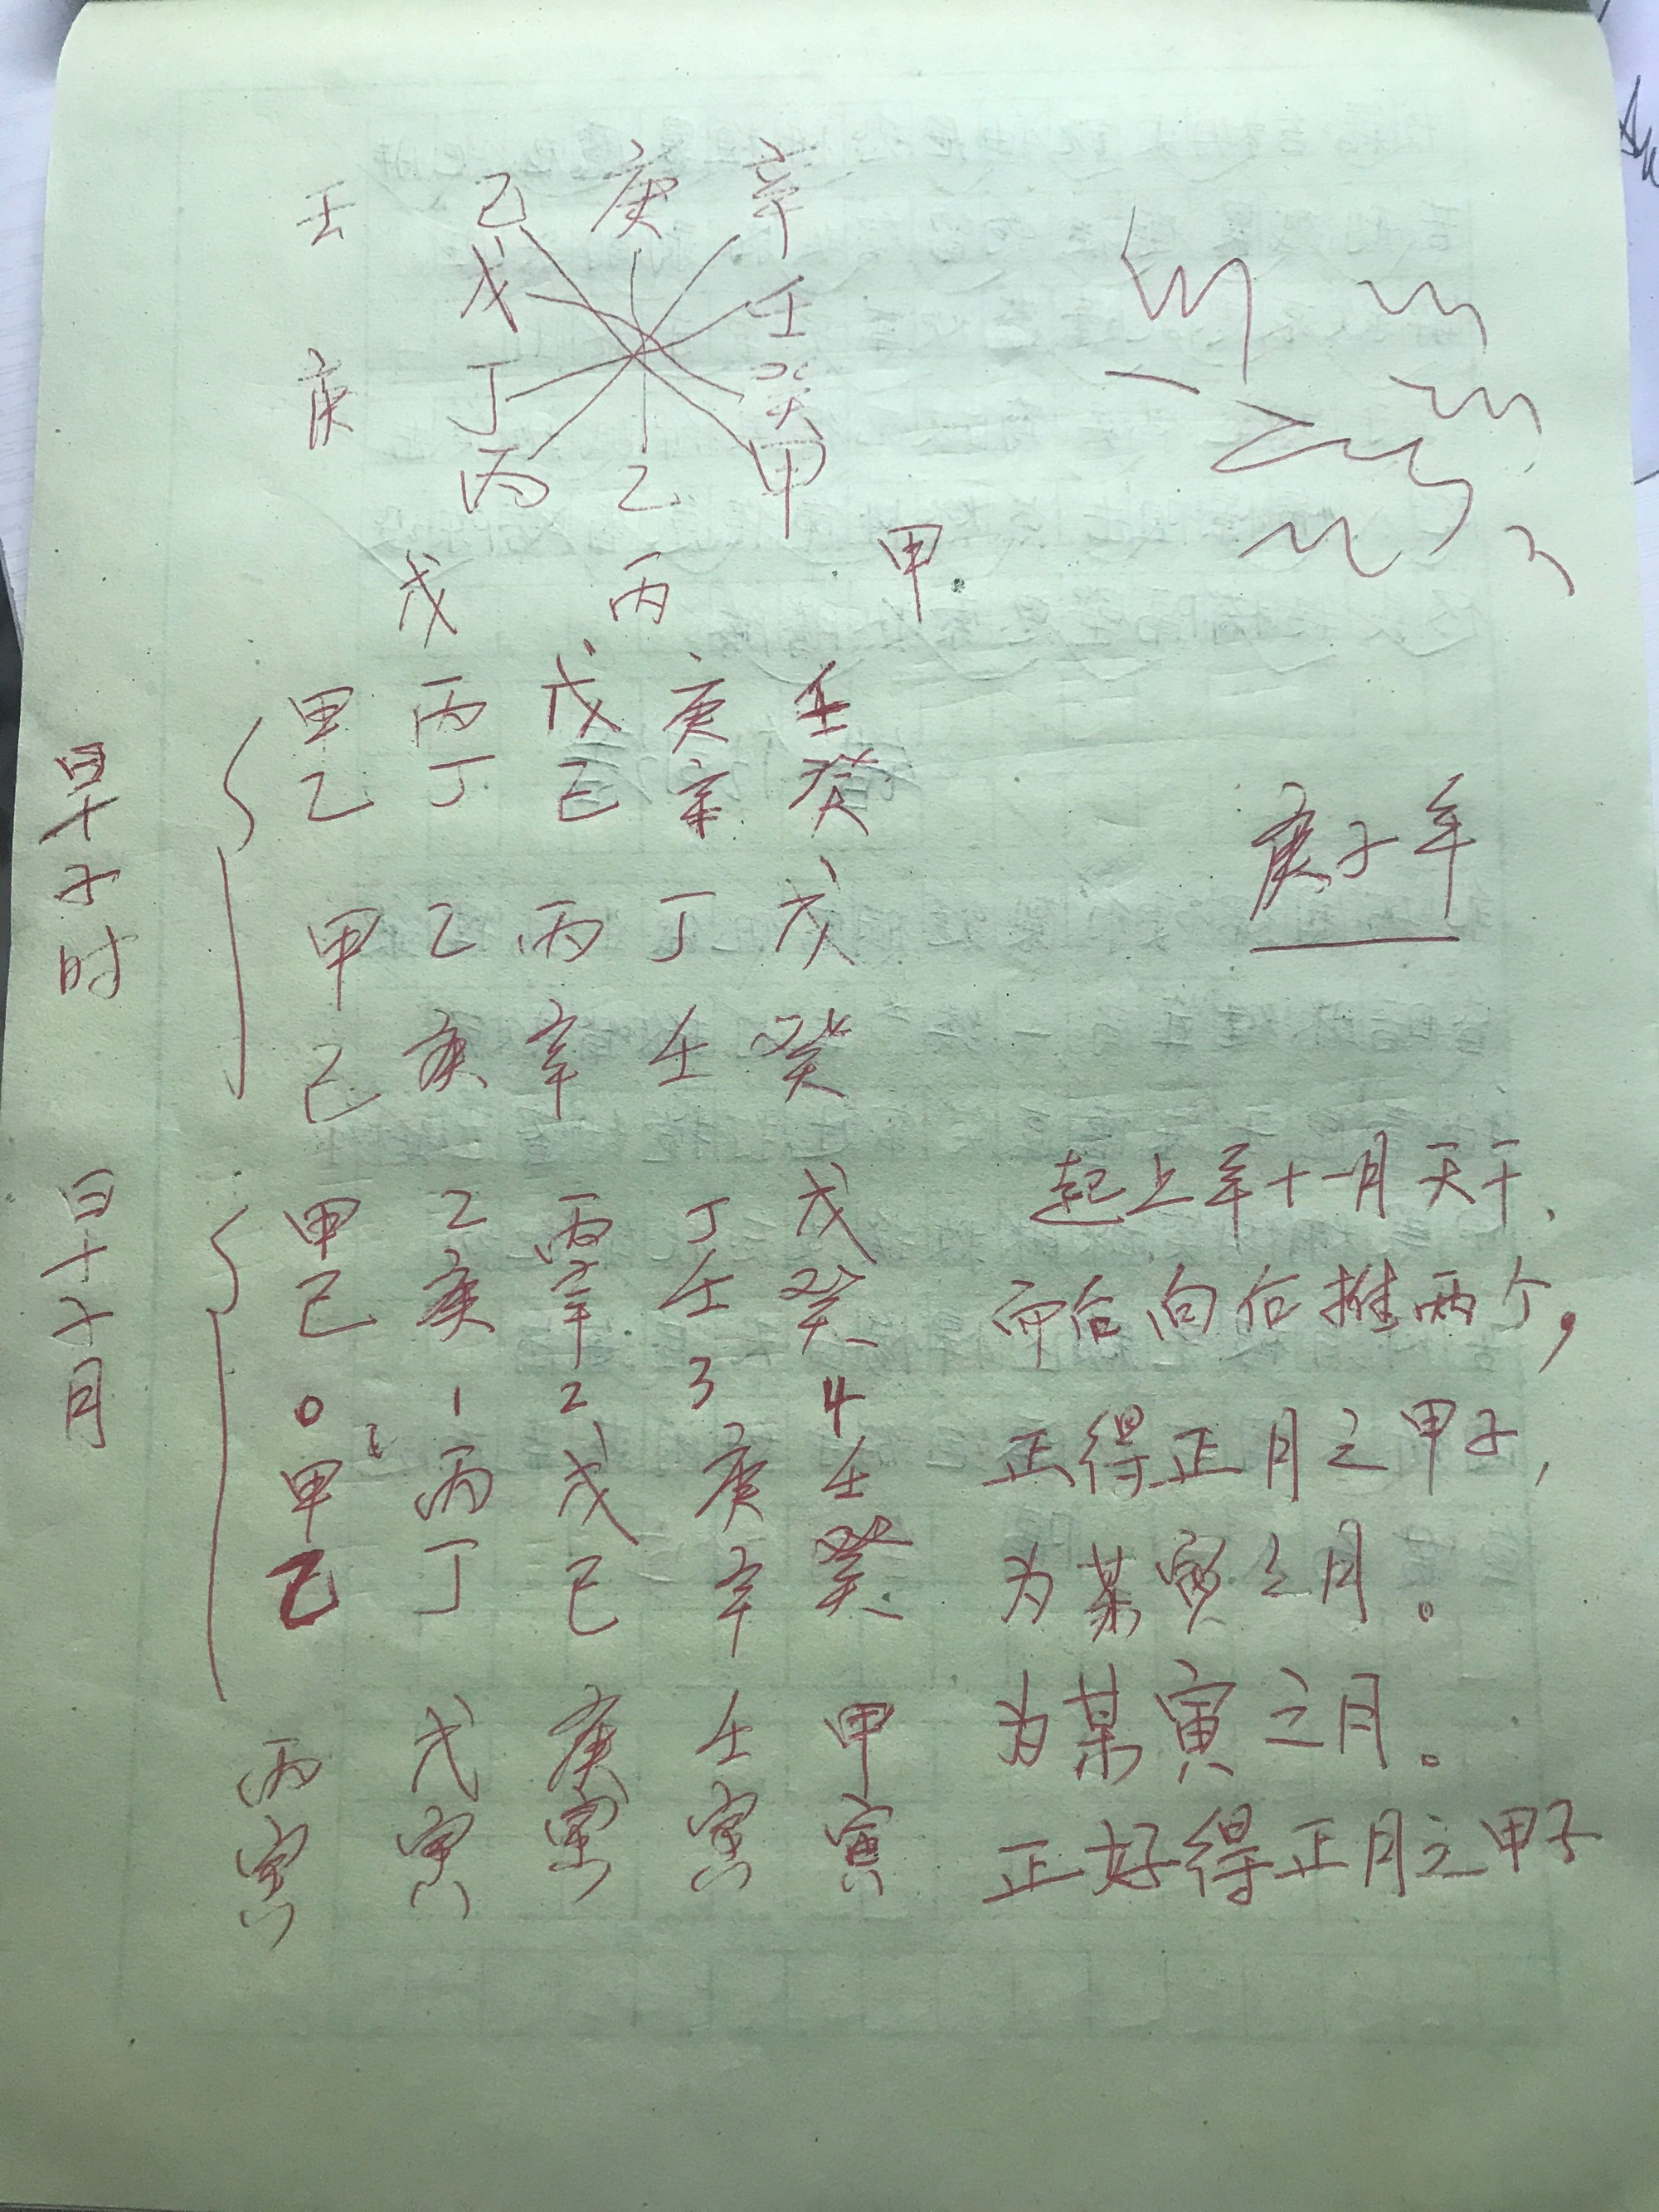 壬 己 庚 辛
戊 壬
庚 丁 癸
丙 乙 甲
戊 丙 甲
早子时
甲 丙 戊 庚 壬
乙 丁 己 辛 癸
甲 乙 丙 丁 戊
己 庚 辛 壬 癸
庚子年
早子月
甲 乙 丙 丁 戊
己 庚 辛 壬 癸
0 1 2 3 4
甲 丙 戊 庚 壬
乙 丁 己 辛 癸
丙 戊 庚 壬 甲
寅 寅 寅 寅 寅
起上年十一月天干、
而后向后推两个，
正得正月之甲子，
为某寅之月。
为某寅之月。
正好得正月之甲子